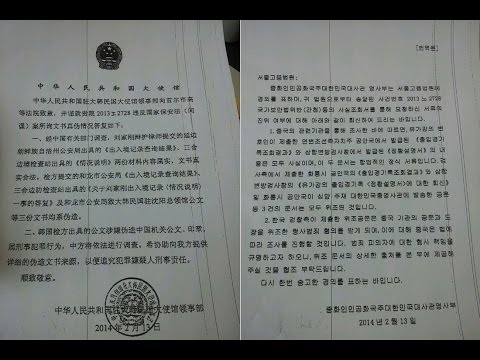 中华人民共和国大使馆
中华人民共和国驻大韩民国大使馆领事部向首尔市高
等法院致意,并谨就贵院 2013 ±2728 违反国家保安法(间
谍)案所询文书真伪情况答复如下:
一、经中国有关部门调查,刘家刚辩护律师提交的延边
朝鲜族自治州公安局出具的《出入境记录查询结果》、三合
边境检查站出具的《情况说明》两份材料内容属实,文书真
实合法。检方提交的和龙市公安局《出入境记录查询结果》、
三合边防检查站出具的《关于刘家刚出入境记录(情况说明)
一事的答复》及和龙市公安局致大韩民国驻沈阳总领馆公文
等三份文书均系伪造。
二、韩国检方出具的公文涉嫌伪造中国机关公文、印章,
属刑事犯罪行为,中方将依法进行调查。希协助向我方提供
详细的伪造文书来源,以便追究犯罪嫌疑人刑事责任。
顺致敬意。
中华人民共和国驻大韩民国大使馆领事部
2014 年 2 月 13 日
[번역문]
서울고등법원:
중화인민공화국주대한민국대사관 영사부는 서울고등법원에
경의를 표하며, 귀 법원으로부터 송달된 사건번호 2013 노 2728
국가보안법위반(간첩)등의 사실조회서를 통해 요청하신 서류의
진위 여부에 대해 아래와 같이 회신하여 드리는 바입니다.
1. 중국의 관련기관을 통해 조사한 바에 따르면, 유가강의 변
호인이 제출한 연변조선족자치주 공안국에서 발급된 《출입경기
록조회결과》와 삼합변방검사참에서 발급된 《정황설명서》의 내
용은 모두 사실이며, 이 두 문서는 합법적인 정식 서류입니다.
검사측에서 제출한 화룡시 공안국의 《출입경기록조회결과》와 삼합
변방검사참의 《유가강의 출입경기록 <정황설명서>에 대한 회신》
및 화룡시 공안국이 심양 주재 대한민국총영사관에 발송한 공문
등 3건의 문서는 모두 위조된 것입니다.
2. 한국 검찰측이 제출한 위조공문은 중국 기관의 공문과 도
장을 위조한 형사범죄 혐의를 받게 되며, 이에 대해 중국은 법에
따라 조사를 진행할 것입니다. 범죄 피의자에 대한 형사 책임을
규명하고자 하오니, 위조 문서의 상세한 출처를 본 부에 제공해
주실 것을 협조 부탁드립니다.
다시 한번 숭고한 경의를 표하는 바입니다.
중화인민공화국주대한민국대사관영사부
2014 년 2 월 13 일